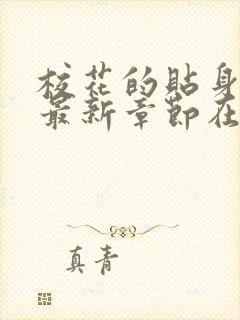 校花的貼身
最新章節在
真青